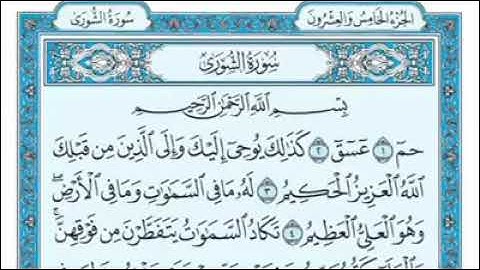 سُورَةُ الشُّورَىٰ
الجُزْءُ الخَامِسُ وَالعِشْرُونَ
سُورَةُ الشُّورَىٰ
بِسْمِ ٱللَّهِ ٱلرَّحْمَٰنِ ٱلرَّحِيمِ
حمٓ ١ عٓسٓقٓ ٢ كَذَٰلِكَ يُوحِىٓ إِلَيْكَ وَإِلَى ٱلَّذِينَ مِن قَبْلِكَ
ٱللَّهُ ٱلْعَزِيزُ ٱلْحَكِيمُ ٣ لَهُۥ مَا فِى ٱلسَّمَٰوَٰتِ وَمَا فِى ٱلْأَرْضِ ۖ
وَهُوَ ٱلْعَلِىُّ ٱلْعَظِيمُ ٤ تَكَادُ ٱلسَّمَٰوَٰتُ يَتَفَطَّرْنَ مِن فَوْقِهِنَّ ۚ